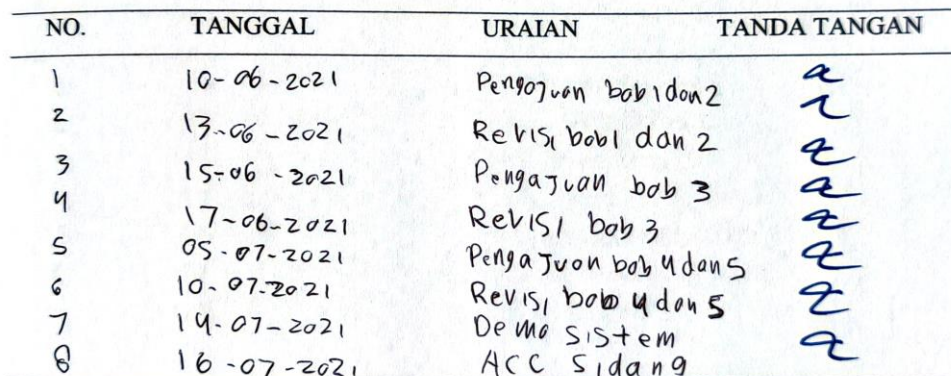 NO. TANGGAL URAIAN TANDA TANGAN
1 10-06-2021 Pengajuan bab 1 dan 2
2 13-06-2021 Revisi bab 1 dan 2
3 15-06-2021 Pengajuan bab 3
4 17-06-2021 Revisi bab 3
5 05-07-2021 Pengajuan bab 4 dan 5
6 10-07-2021 Revisi bab 4 dan 5
7 14-07-2021 Demo sistem
8 16-07-2021 ACC Sidang